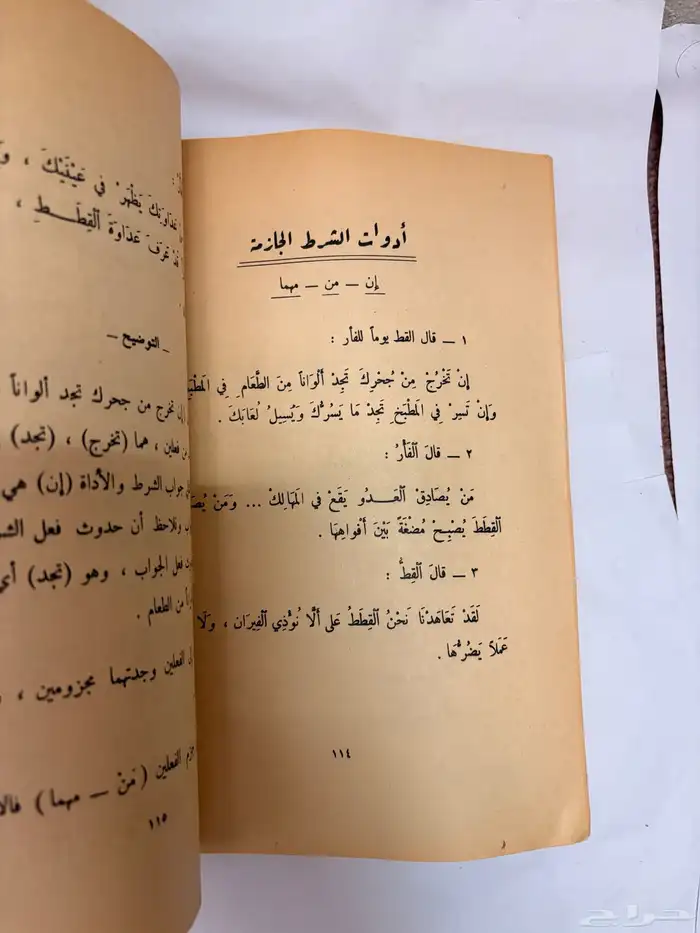 أدوات الشرط الجازمة
إن — من — مهما
١ — قال القط يوماً للفأر :
إنْ تَخْرُجْ مِنْ جُحْرِكَ تَجِدْ أَلْوَاناً مِنَ الطَّعَامِ فِي
وَإنْ تَسِرْ فِي المَطْبَخِ تَجِدْ مَا يَسُرُّكَ وَيُسِيلُ لُعَابَكَ .
٢ — قالَ الفَأرُ :
مَنْ يُصَادِقْ العَدُو يَقَعْ فِي المَهَالِكْ ... وَمَنْ
القِطَطَ يُصْبِحْ مُضْغَةً بَيْنَ أَفْواهِهَا .
٣ — قالَ القِطُّ :
لَقَدْ تَعَاهَدْنَا نَحْنُ القِطَطُ عَلى أَلَّا نُؤْذِي الفِيرَان ، وَلَا
عَمَلاً يَضُرُّهَا .
١١٤
يَظْهَرْ فِي عَيْنَيْكَ ،
عَدَاوَةَ القِطَطِ ،
— التوضيح —
تخرج من جحرك تجد ألواناً
فعلين ، هما (تخرج) ، (تجد)
جواب الشرط والأداة (إن) هي
ونلاحظ أن حدوث فعل
فعل الجواب ، وهو (تجد) أي
من الطعام .
الفعلين وجدتهما مجزومين ،
الفعلين (مَنْ — مهما)
١١٥
حراج